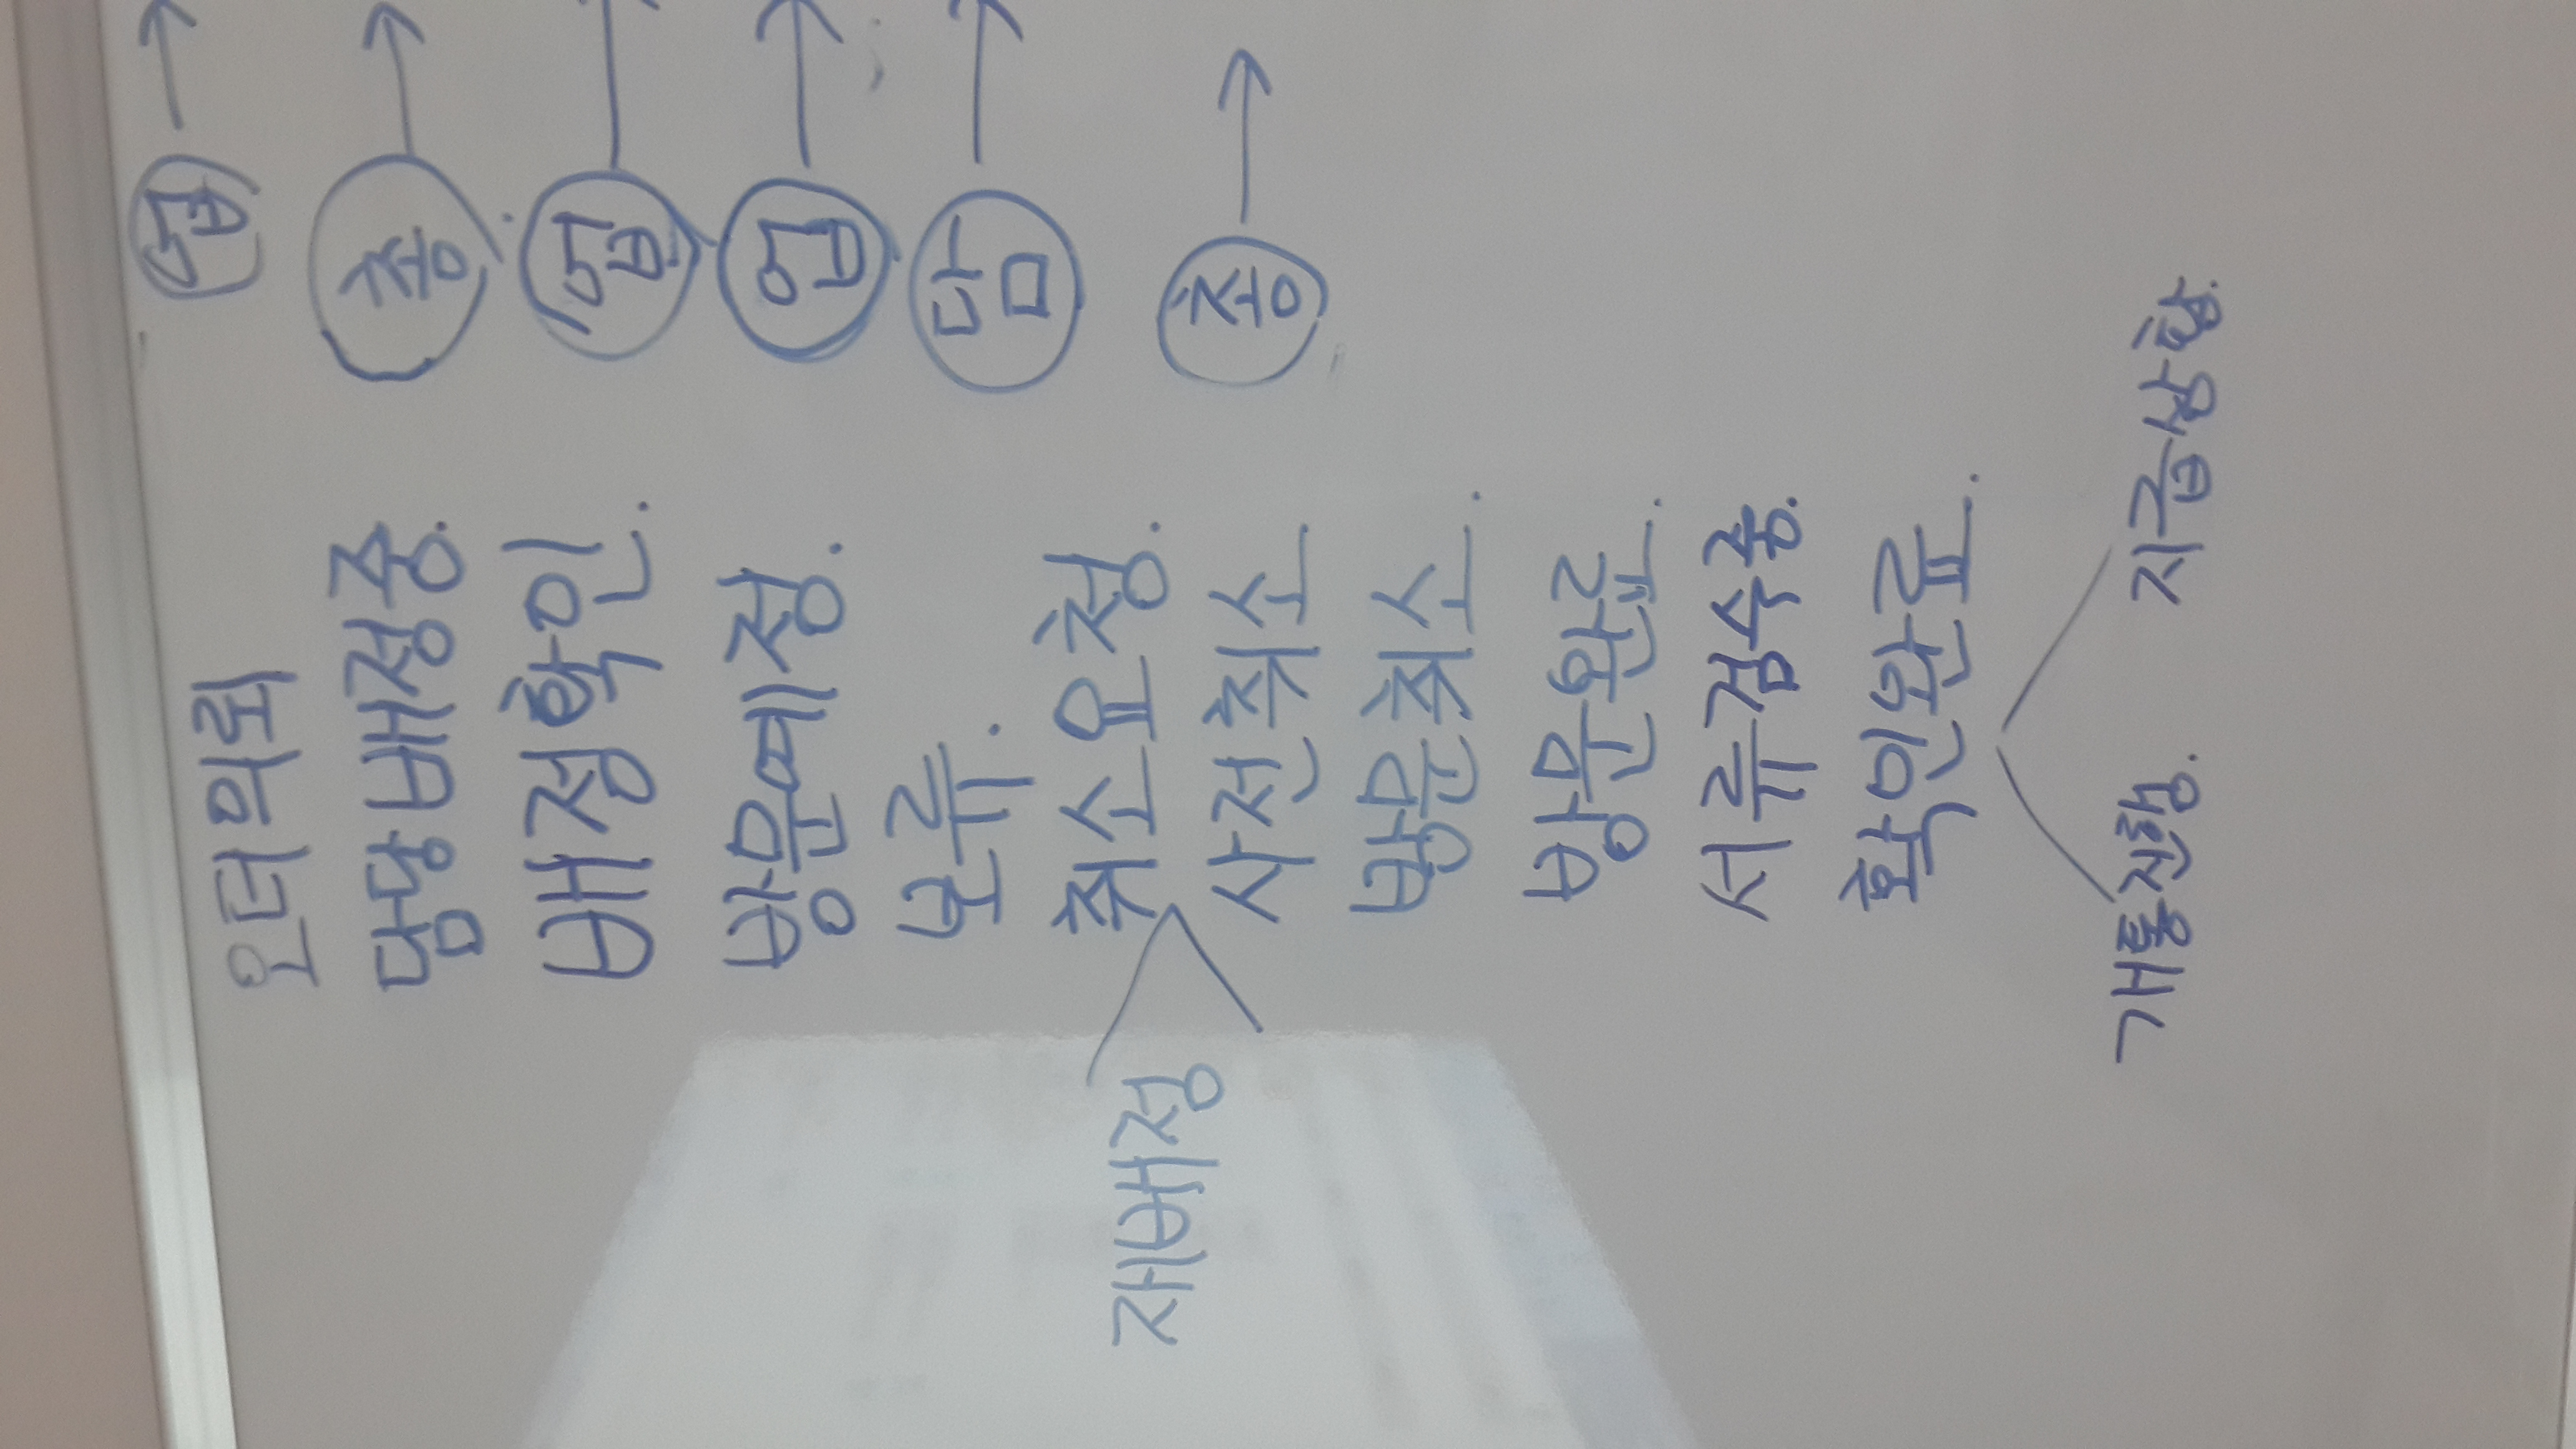 오더의뢰 업 →
담당배정중. 총 →
배정확인. 업 →
방문예정. 업 →
보류. 담 →
취소요청. 총 →
재배정
사전취소
방문취소.
방문완료.
서류검수중.
확인완료.
개통진행. 지급상황.